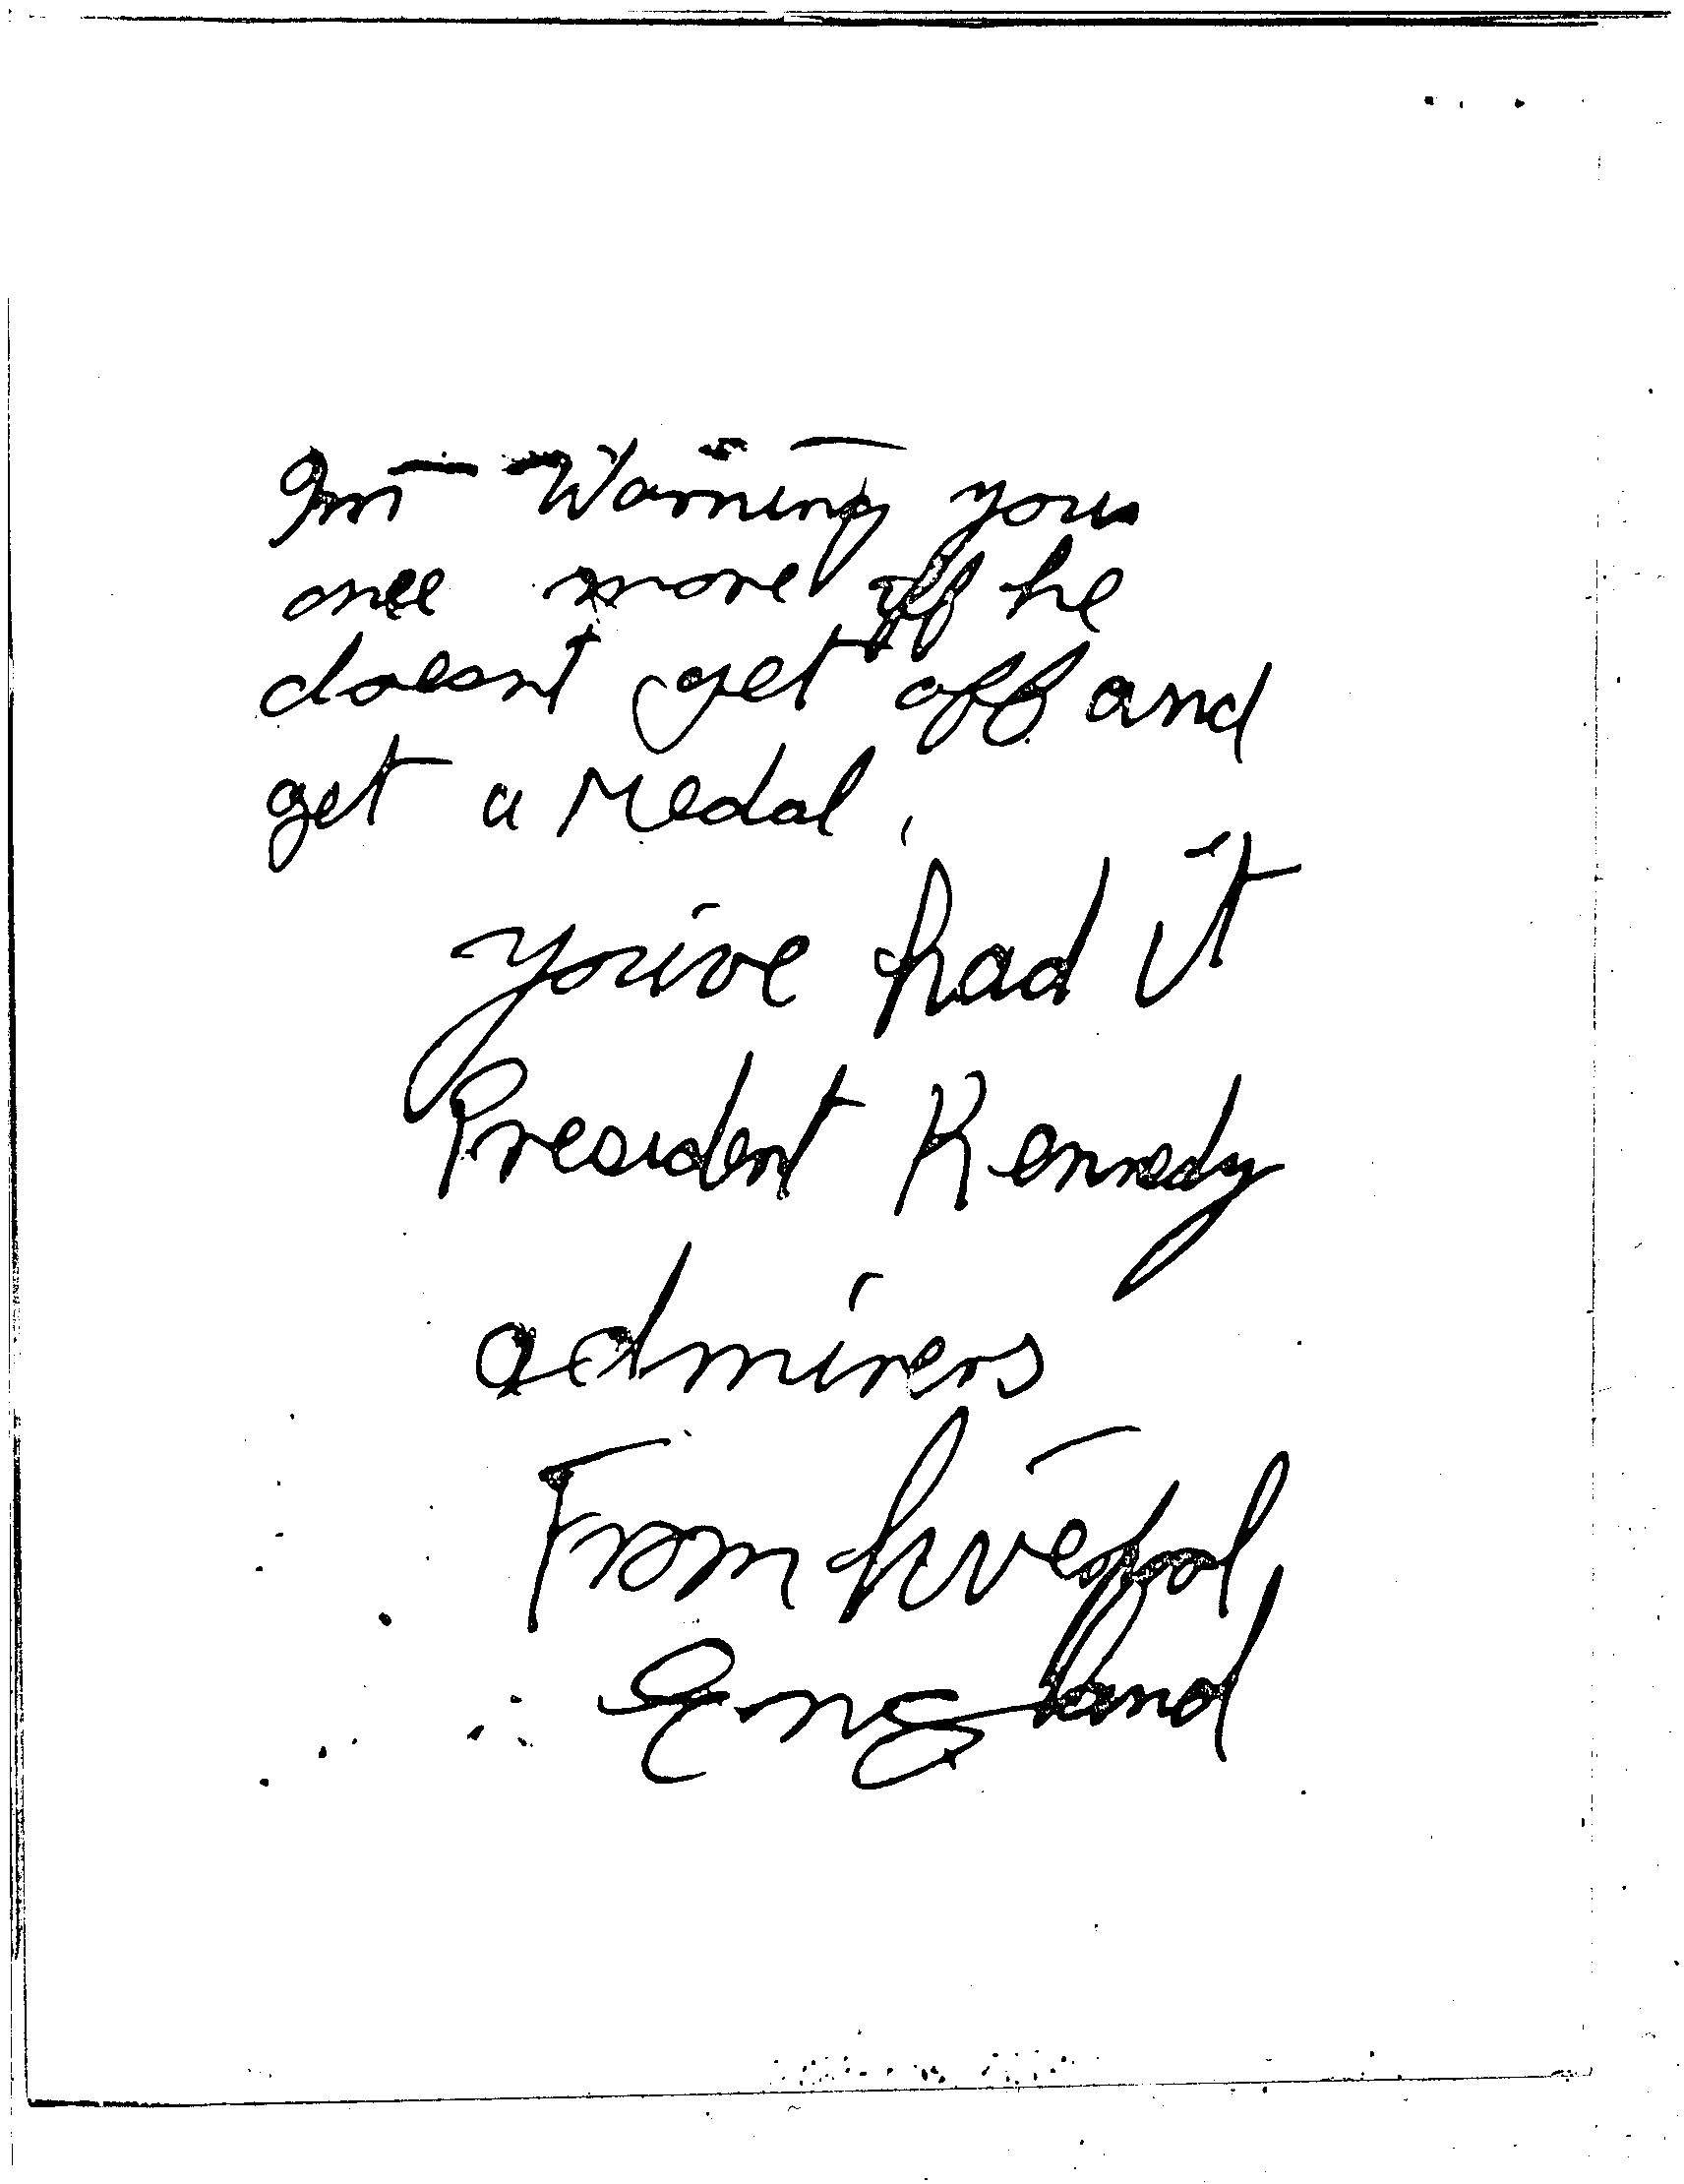 Im Warning you
once more if he
doesnt get off and
get a Medal,
you've had it
President Kennedy
admirers
From Liverpool
England